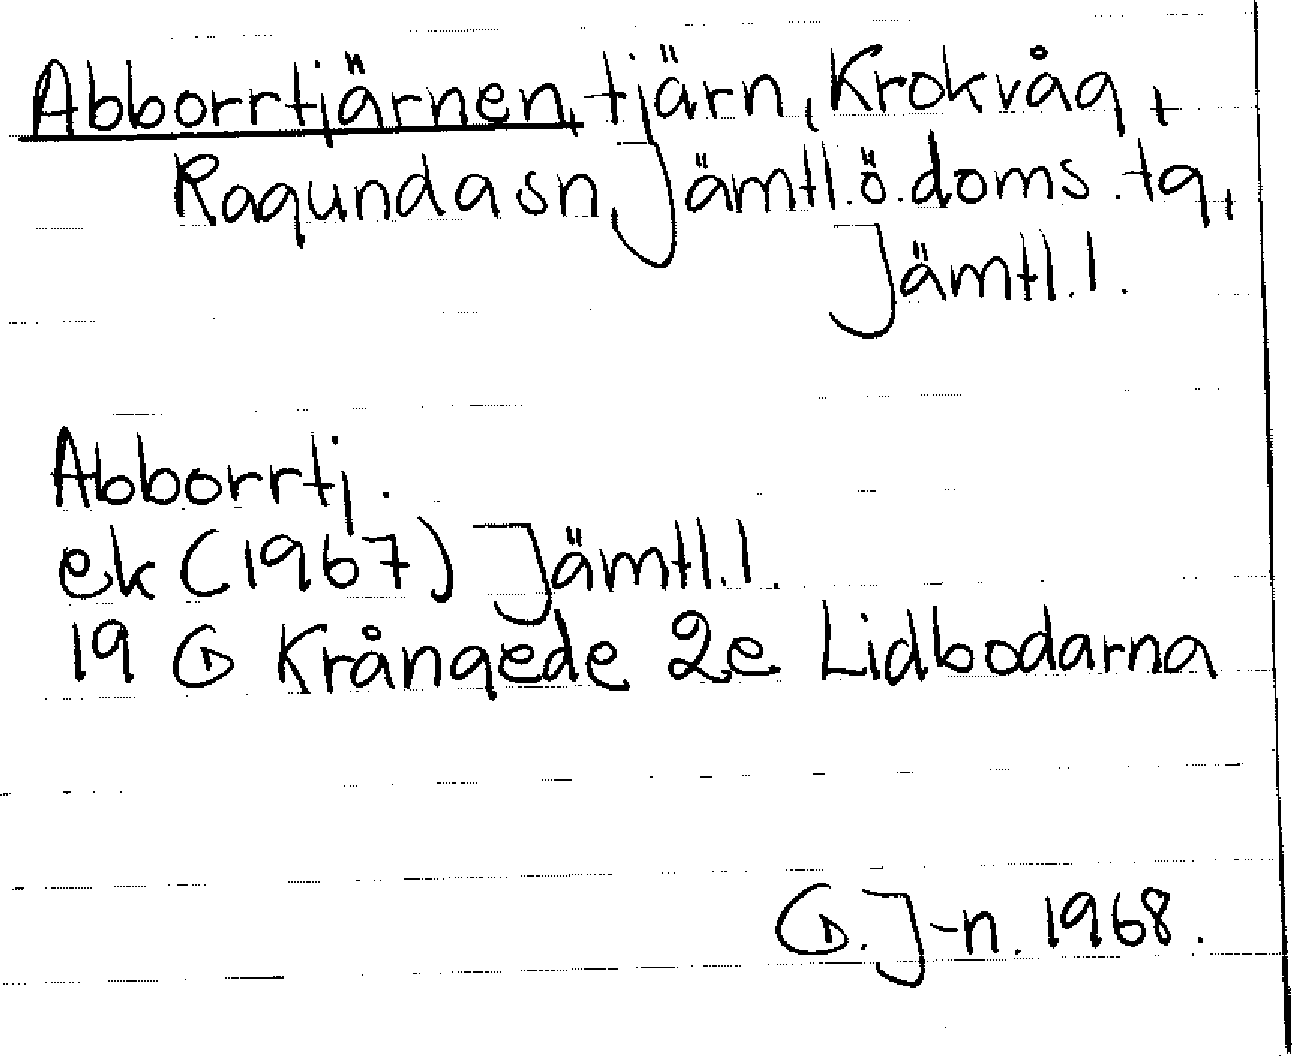 Abborrtjärnen, tjärn, Krokvåg,
Ragunda sn, Jämtl.ö.doms.tg,
Jämtl.l.
Abborrtj.
ek (1967) Jämtl.l.
19 G Krångede 2e Lidbodarna
G. J-n. 1968.